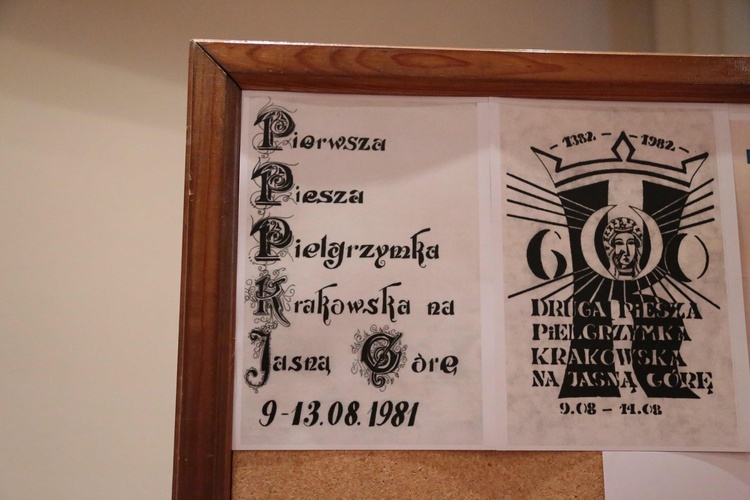 Pierwsza
Piesza
Pielgrzymka
Krakowska na
Jasną Górę
9-13.08.1981
- 1382 - 1982 -
600
DRUGA PIESZA
PIELGRZYMKA
KRAKOWSKA
NA JASNĄ GÓRĘ
9.08 - 14.08